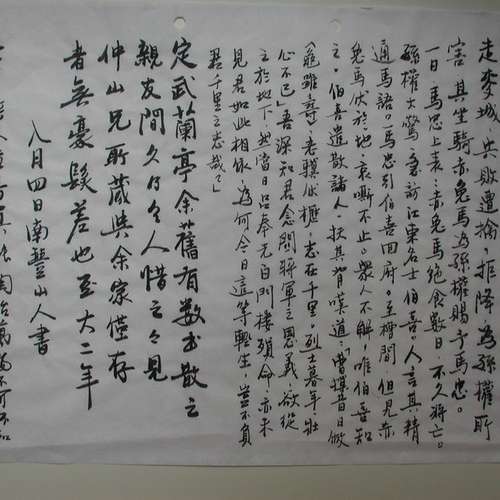 走麥城，兵敗遭擒，拒降為孫權所
害。其坐騎赤兔馬為孫權賜予馬忠。
一日，馬忠上表：赤兔馬絕食數日，不久將亡。
孫權大驚，急訪江東名士伯喜。人言其精
通馬語。馬忠引伯喜回府，至槽間，但見赤
兔馬伏於地，哀嘶不止。眾人不解，唯伯喜知
之。伯喜遣散諸人，扶其背嘆道：「曹操昔日做
《龜雖壽》，老驥伏櫪，志在千里。烈士暮年，壯
心不已」，吾深知君念關將軍之恩義，欲從
之於地下。然當日呂奉先白門樓殞命，亦未
見君如此相依，為何今日這等輕生，豈不負
君千里之志哉？」
定武蘭亭余舊有數本散之
親友間久乃令人惜之之見
仲山兄所藏與余家僅存
者無豪髮差也至大二年
八月四日南豐山人書